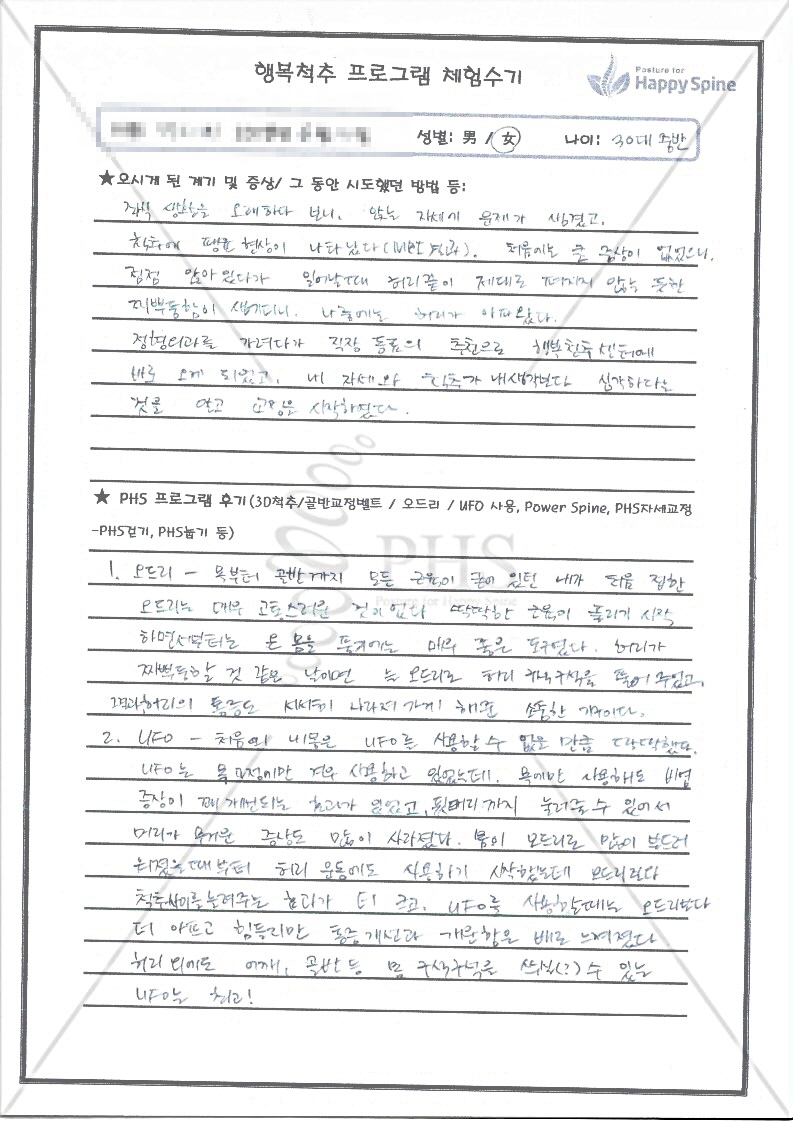 행복척추 프로그램 체험수기
Posture for
Happy Spine
성별: 男 / 女 나이: 30대 중반
★오시게 된 계기 및 증상/ 그 동안 시도했던 방법 등:
좌식 생활을 오래하다 보니, 앉는 자세에 문제가 생겼고,
척추에 팽윤 현상이 나타났다(MRI 결과). 처음에는 큰 증상이 없었으나,
점점 앉아있다가 일어날때 허리쪽이 제대로 펴지지 않는 듯한
찌뿌둥함이 생기더니, 나중에는 허리가 아파왔다.
정형외과를 가려다가 직장 동료의 추천으로 행복척추센터에
바로 오게 되었고, 내 자세와 척추가 내생각보다 심각하다는
것을 알고 교정을 시작하였다.
★ PHS 프로그램 후기(3D척추/골반교정벨트 / 오드리 / UFO 사용, Power Spine, PHS자세교정
-PHS걷기, PHS눕기 등)
PHS
Posture for Happy Spine
1. 오드리 - 목부터 골반까지 모든 근육이 굳어 있던 내가 처음 접한
오드리는 매우 고통스러운 것이었다 딱딱한 근육이 풀리기 시작
하면서부터는 온 몸을 풀기에는 매우 좋은 도구였다. 허리가
찌뿌둥할 것 같은 날이면 늘 오드리로 허리 구석구석을 풀어 주었고,
결과허리의 통증도 서서히 나아져가게 해준 소중한 기구이다.
2. UFO - 처음엔 내목은 UFO를 사용할 수 없을 만큼 딱딱했다.
UFO는 목교정에만 겨우 사용하고 있었는데, 목에만 사용해도 비염
증상이 꽤 개선되는 효과가 있었고, 뒷머리까지 눌러줄수 있어서
머리가 무거운 증상도 많이 사라졌다. 몸이 오드리로 많이 부드러
워졌을때부터 허리 운동에도 사용하기 시작했는데 오드리보다
척추사이를늘려주는 효과가 더 크고, UFO를 사용할때는 오드리보다
더 아프고 힘들지만 통증개선과 개운함은 배로 느껴졌다
허리 외에도 어깨, 골반 등 몸 구석구석을 쑤실(?) 수 있는
UFO는 최고!